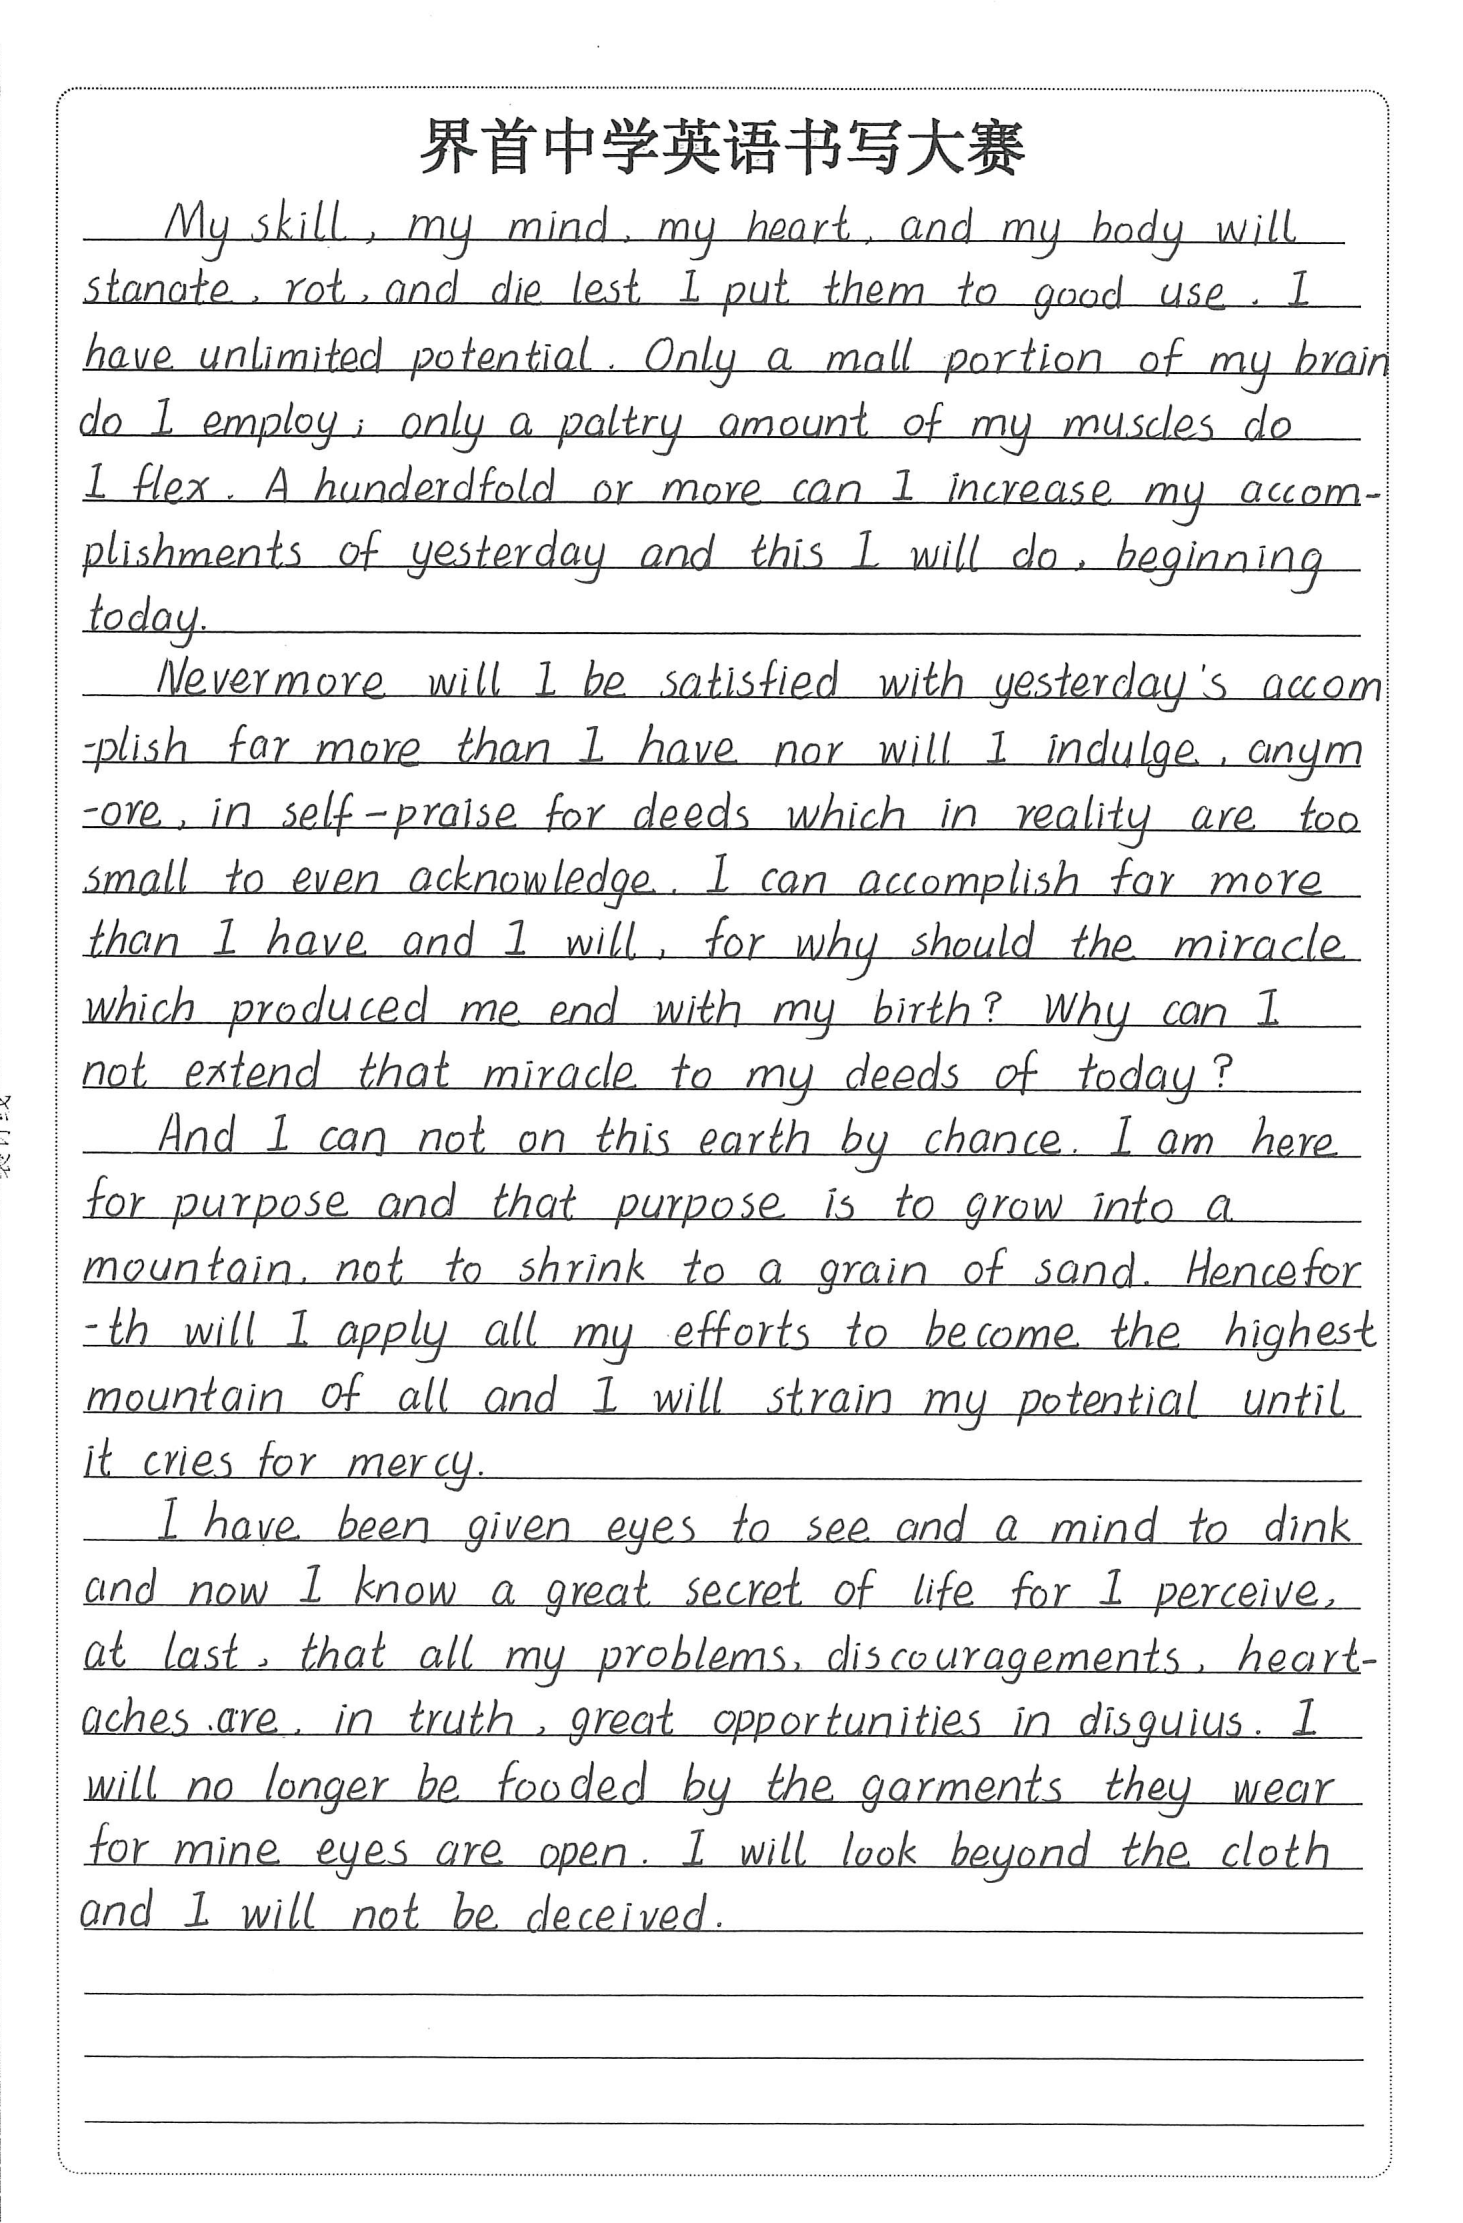 界首中学英语书写大赛
My skill, my mind, my heart, and my body will
stanate, rot, and die lest I put them to good use. I
have unlimited potential. Only a mall portion of my brain
do I employ; only a paltry amount of my muscles do
I flex. A hunderdfold or more can I increase my accom-
plishments of yesterday and this I will do, beginning
today.
Nevermore will I be satisfied with yesterday's accom
-plish far more than I have nor will I indulge, anym
-ore, in self-praise for deeds which in reality are too
small to even acknowledge. I can accomplish far more
than I have and I will, for why should the miracle
which produced me end with my birth? Why can I
not extend that miracle to my deeds of today?
And I can not on this earth by chance. I am here
for purpose and that purpose is to grow into a
mountain, not to shrink to a grain of sand. Hencefor
-th will I apply all my efforts to become the highest
mountain of all and I will strain my potential until
it cries for mercy.
I have been given eyes to see and a mind to dink
and now I know a great secret of life for I perceive,
at last, that all my problems, discouragements, heart-
aches .are, in truth, great opportunities in disguius. I
will no longer be fooded by the garments they wear
for mine eyes are open. I will look beyond the cloth
and I will not be deceived.